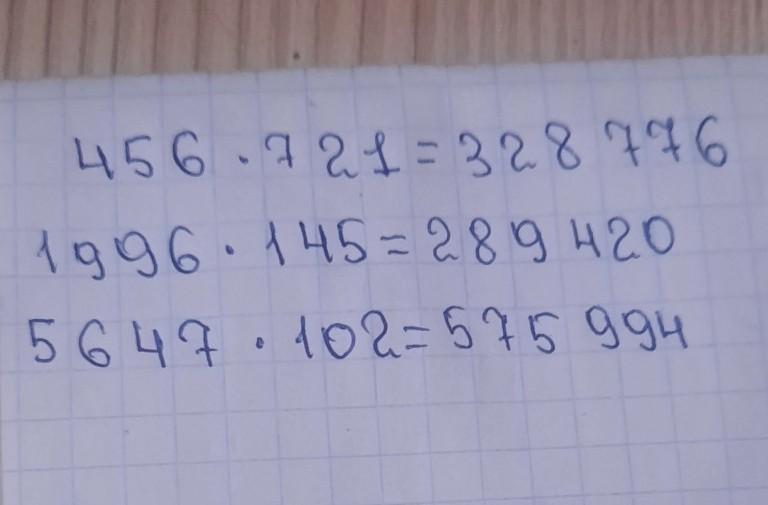 456 · 721 = 328 776
1996 · 145 = 289 420
5647 · 102 = 575 994